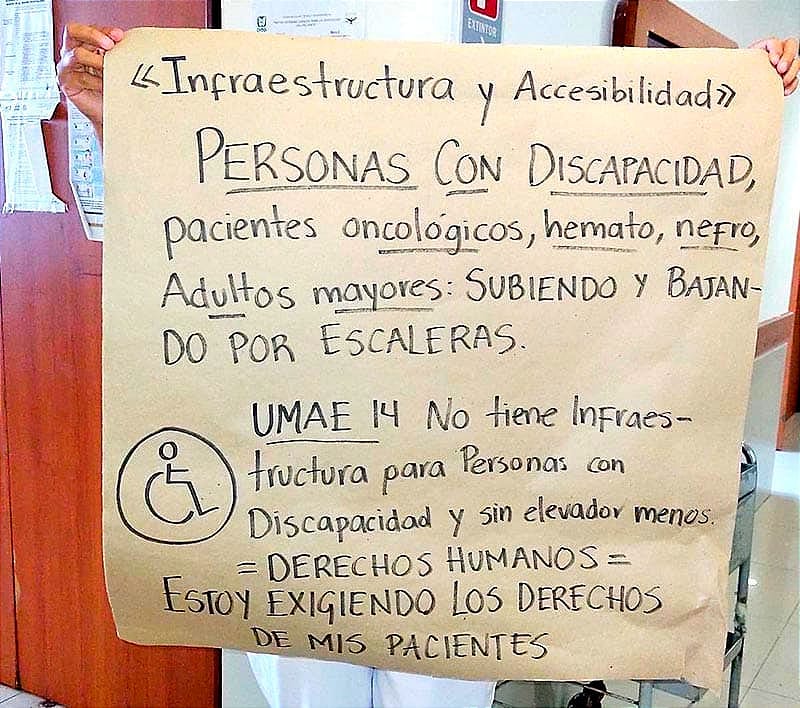 EXTINTOR
«Infraestructura y Accesibilidad»
PERSONAS CON DISCAPACIDAD,
pacientes oncológicos, hemato, nefro,
Adultos mayores: SUBIENDO Y BAJAN-
DO POR ESCALERAS.
UMAE 14 No tiene Infraes-
tructura para Personas con
Discapacidad y sin elevador menos.
= DERECHOS HUMANOS =
ESTOY EXIGIENDO LOS DERECHOS
DE MIS PACIENTES